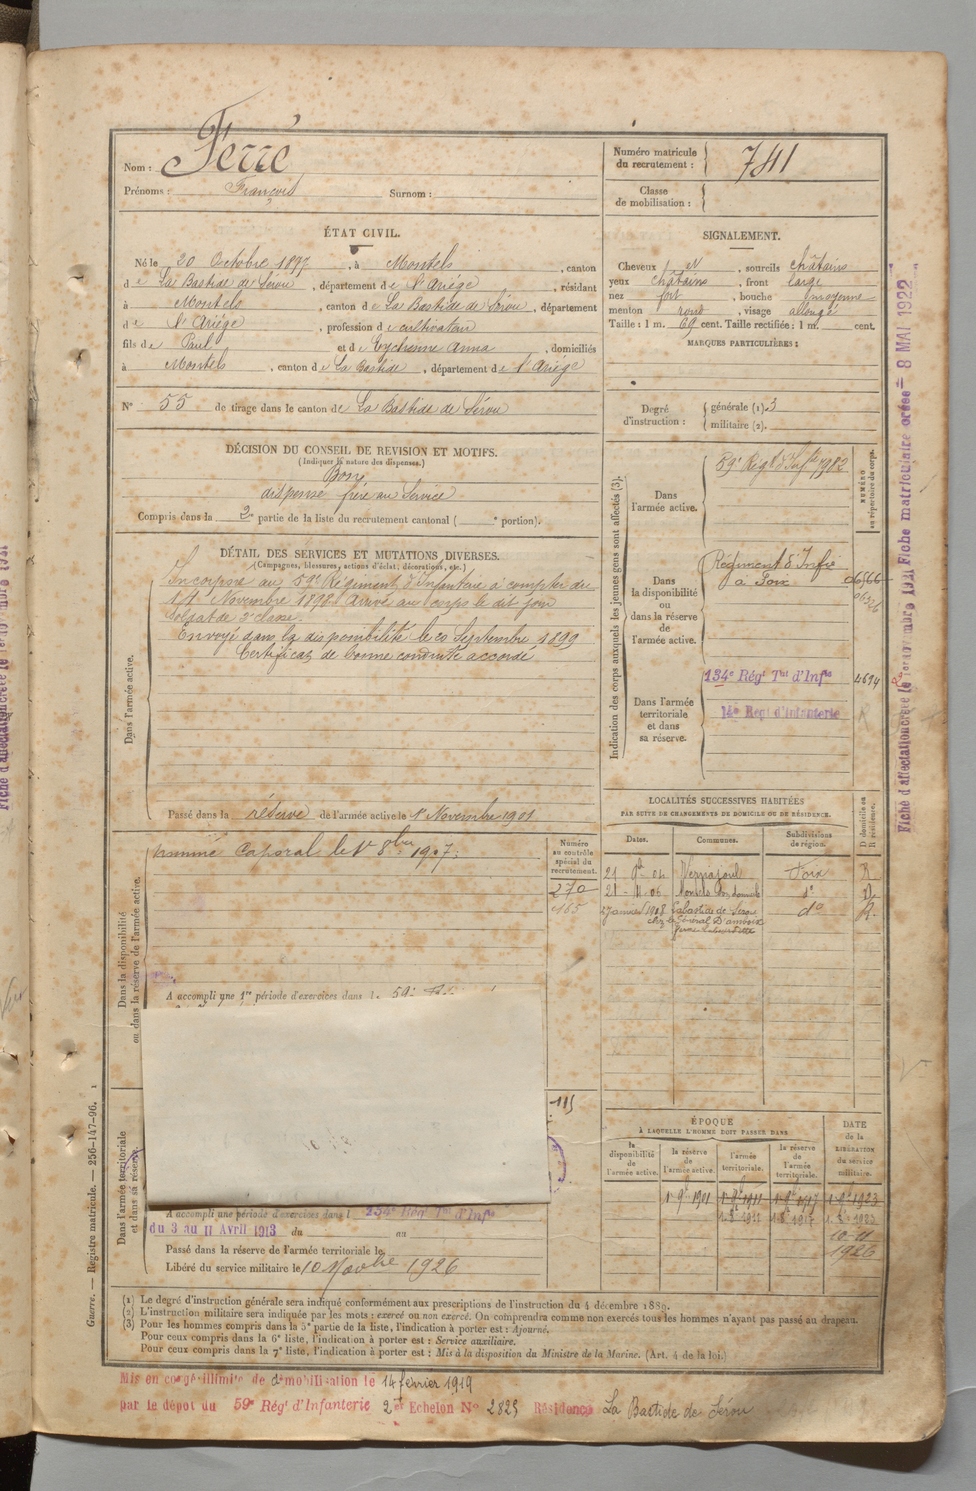 Nom : Ferré
Prénoms : François Surnom :
Numéro matricule du recrutement : 741
Classe de mobilisation :
ÉTAT CIVIL.
Né le 20 Octobre 1877, à Montels, canton
de La Bastide de Sérou, département de l'Ariège, résidant
à Montels, canton de La Bastide de Sérou, département
de l'Ariège, profession de cultivateur
fils de Paul et de Eychenne Anna, domiciliés
à Montels, canton de La Bastide, département de l'Ariège
N° 55 de tirage dans le canton de La Bastide de Sérou
SIGNALEMENT.
Cheveux et, sourcils châtains
yeux châtains, front large
nez fort, bouche moyenne
menton rond, visage allongé
Taille : 1 m. 69 cent. Taille rectifiée : 1 m. cent.
MARQUES PARTICULIÈRES :
Degré d'instruction : générale (1). 3
militaire (2).
DÉCISION DU CONSEIL DE REVISION ET MOTIFS.
(Indiquer la nature des dispenses.)
Bon
dispensé frère au Service
Compris dans la 2e partie de la liste du recrutement cantonal ( e portion).
DÉTAIL DES SERVICES ET MUTATIONS DIVERSES.
(Campagnes, blessures, actions d'éclat, décorations, etc.)
Dans l'armée active.
Incorporé au 59e Régiment d'Infanterie à compter du
Novembre 1898 arrivé au corps le dit jour
Soldat de 2e classe.
Envoyé dans la disponibilité le 20 Septembre 1899
Certificat de bonne conduite accordé
Passé dans la réserve de l'armée active le 1er Novembre 1901
Indication des corps auxquels les jeunes gens sont affectés (3).
NUMÉRO au répertoire du corps.
Dans l'armée active.
59e Régt d'Infie 1982
Dans la disponibilité ou dans la réserve de l'armée active.
Régiment d'Infie
à Foix
Dans l'armée territoriale et dans sa réserve.
134e Régt Tal d'Infie 4694
14e Régt d'Infanterie
LOCALITÉS SUCCESSIVES HABITÉES
PAR SUITE DE CHANGEMENTS DE DOMICILE OU DE RÉSIDENCE.
Dates. Communes. Subdivisions de région. D domicile ou R résidence.
Vernajoul Foix R
Montels do D
27 janvier 1908 Labastide de Sérou do R.
Dans la disponibilité ou dans la réserve de l'armée active.
Numéro au contrôle spécial du recrutement.
nommé Caporal le 1er 8bre 1907.
270
165
A accompli une 1re période d'exercices dans le 59e
115
Dans l'armée territoriale et dans sa réserve.
A accompli une période d'exercices dans l 134e Régt Tal d'Infie
du 3 au 11 Avril 1913 du au
Passé dans la réserve de l'armée territoriale le
Libéré du service militaire le 10 Novbre 1926
ÉPOQUE
À LAQUELLE L'HOMME DOIT PASSER DANS
la disponibilité de l'armée active. la réserve de l'armée active. l'armée territoriale. la réserve de l'armée territoriale.
DATE de la LIBÉRATION du service militaire.
1er 9bre 1901 1er 9bre 1911 1er 9bre 1917 1er 9bre 1923
10-11
1926
(1) Le degré d'instruction générale sera indiqué conformément aux prescriptions de l'instruction du 4 décembre 1889.
(2) L'instruction militaire sera indiquée par les mots : exercé ou non exercé. On comprendra comme non exercés tous les hommes n'ayant pas passé au drapeau.
(3) Pour les hommes compris dans la 5e partie de la liste, l'indication à porter est : Ajourné.
Pour ceux compris dans la 6e liste, l'indication à porter est : Service auxiliaire.
Pour ceux compris dans la 7e liste, l'indication à porter est : Mis à la disposition du Ministre de la Marine. (Art. 4 de la loi.)
Mis en congé illimité de démobilisation le 14 février 1919
par le dépôt du 59e Régt d'Infanterie 2e Echelon No 2825 Résidence La Bastide de Sérou
Guerre. — Registre matricule. — 256-147-96.
Fiche matriculaire créée 8 MAI 1922